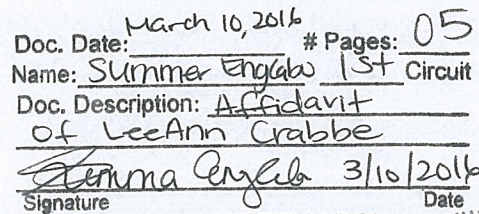 Doc. Date: March 10, 2016 # Pages: 05
Name: Summer Englabo 1st Circuit
Doc. Description: Affidavit
of LeeAnn Crabbe
3/10/2016
Signature Date